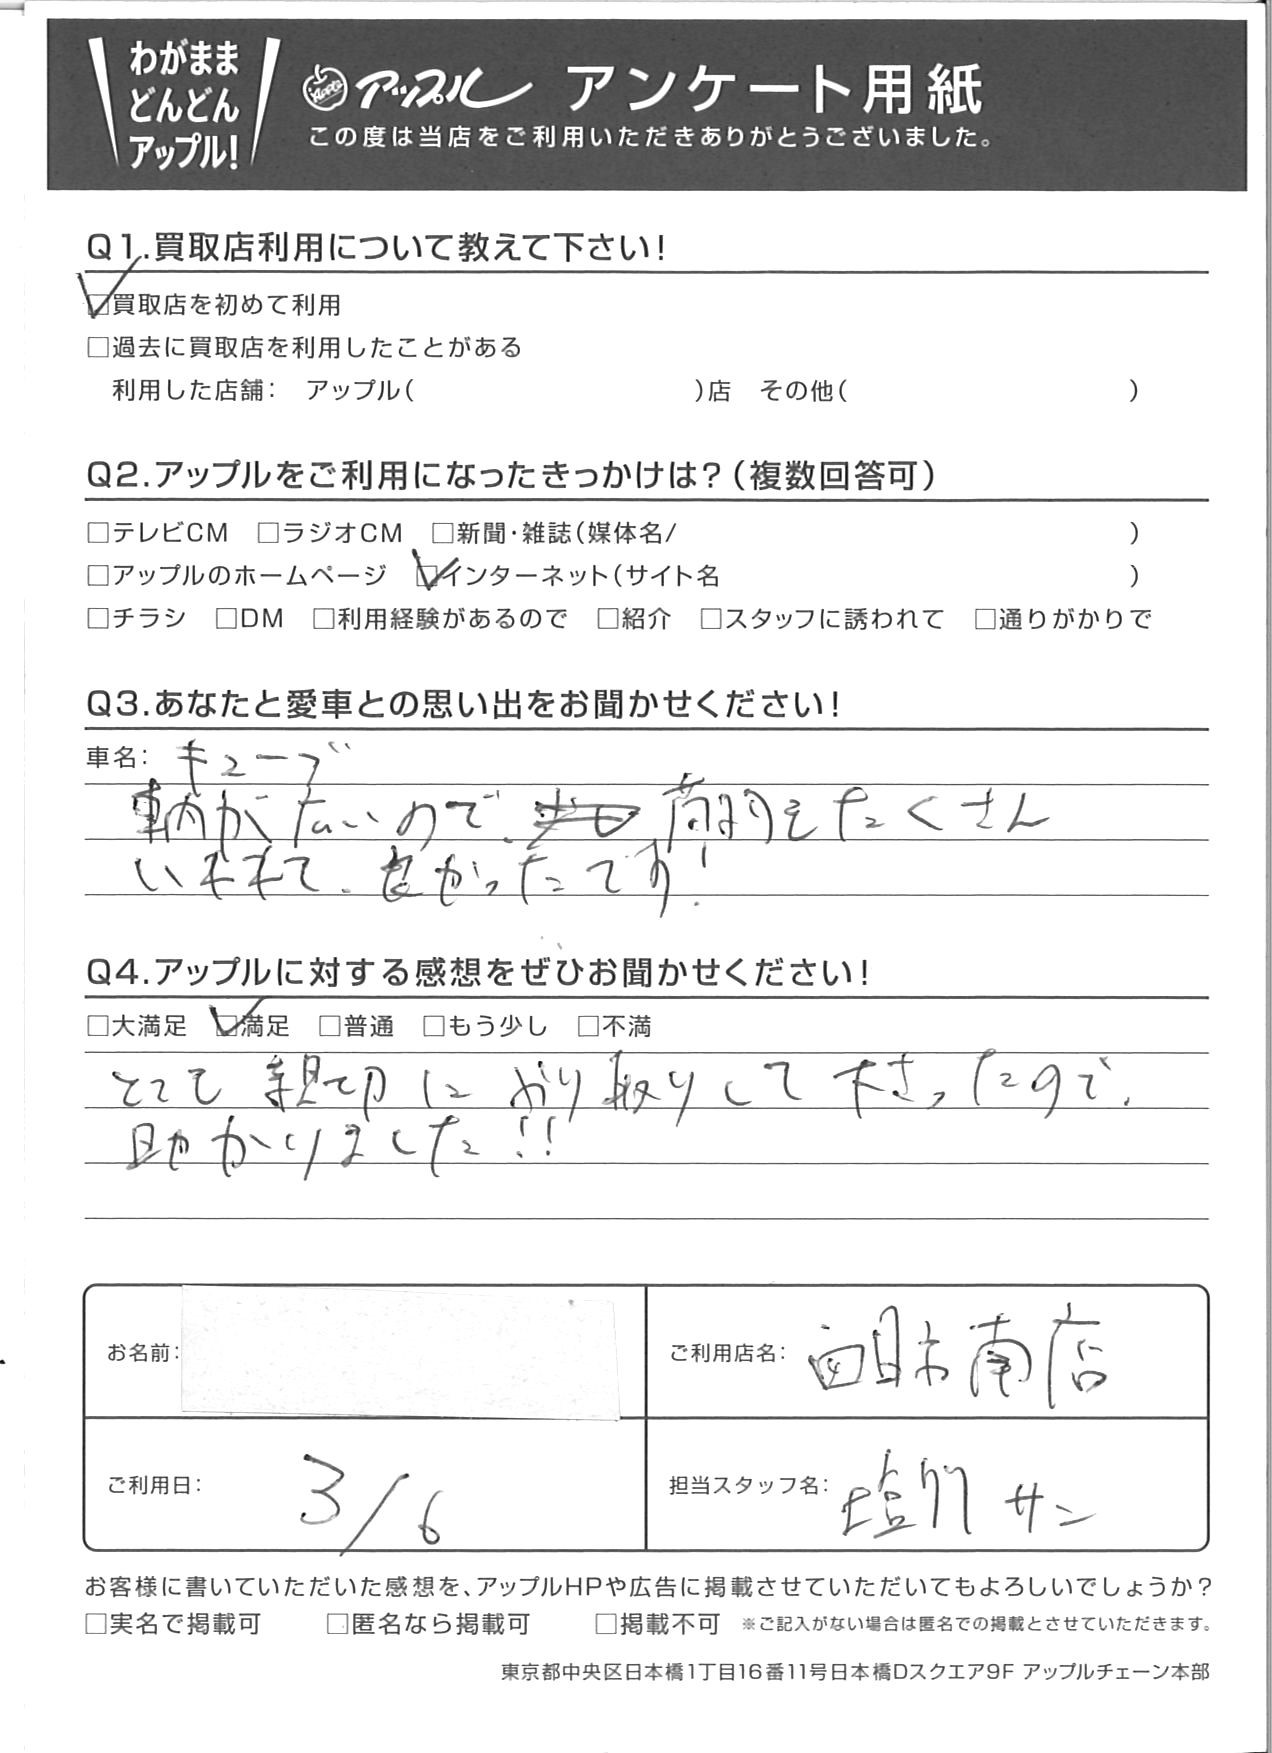 わがまま
どんどん
アップル!
アップル アンケート用紙
この度は当店をご利用いただきありがとうございました。
Q1.買取店利用について教えて下さい!
☑買取店を初めて利用
□過去に買取店を利用したことがある
利用した店舗: アップル( )店 その他( )
Q2.アップルをご利用になったきっかけは?(複数回答可)
□テレビCM □ラジオCM □新聞・雑誌(媒体名/ )
□アップルのホームページ ☑インターネット(サイト名 )
□チラシ □DM □利用経験があるので □紹介 □スタッフに誘われて □通りがかりで
Q3.あなたと愛車との思い出をお聞かせください!
車名: キューブ
車内が広いので、荷物をたくさん
いれれて、良かったです!
Q4.アップルに対する感想をぜひお聞かせください!
□大満足 ☑満足 □普通 □もう少し □不満
とても親切にやり取りして下さったので、
助かりました!!
お名前:
ご利用店名: 四日市南店
ご利用日: 3/6
担当スタッフ名: サン
お客様に書いていただいた感想を、アップルHPや広告に掲載させていただいてもよろしいでしょうか?
□実名で掲載可 □匿名なら掲載可 □掲載不可 ※ご記入がない場合は匿名での掲載とさせていただきます。
東京都中央区日本橋1丁目16番11号日本橋Dスクエア9F アップルチェーン本部